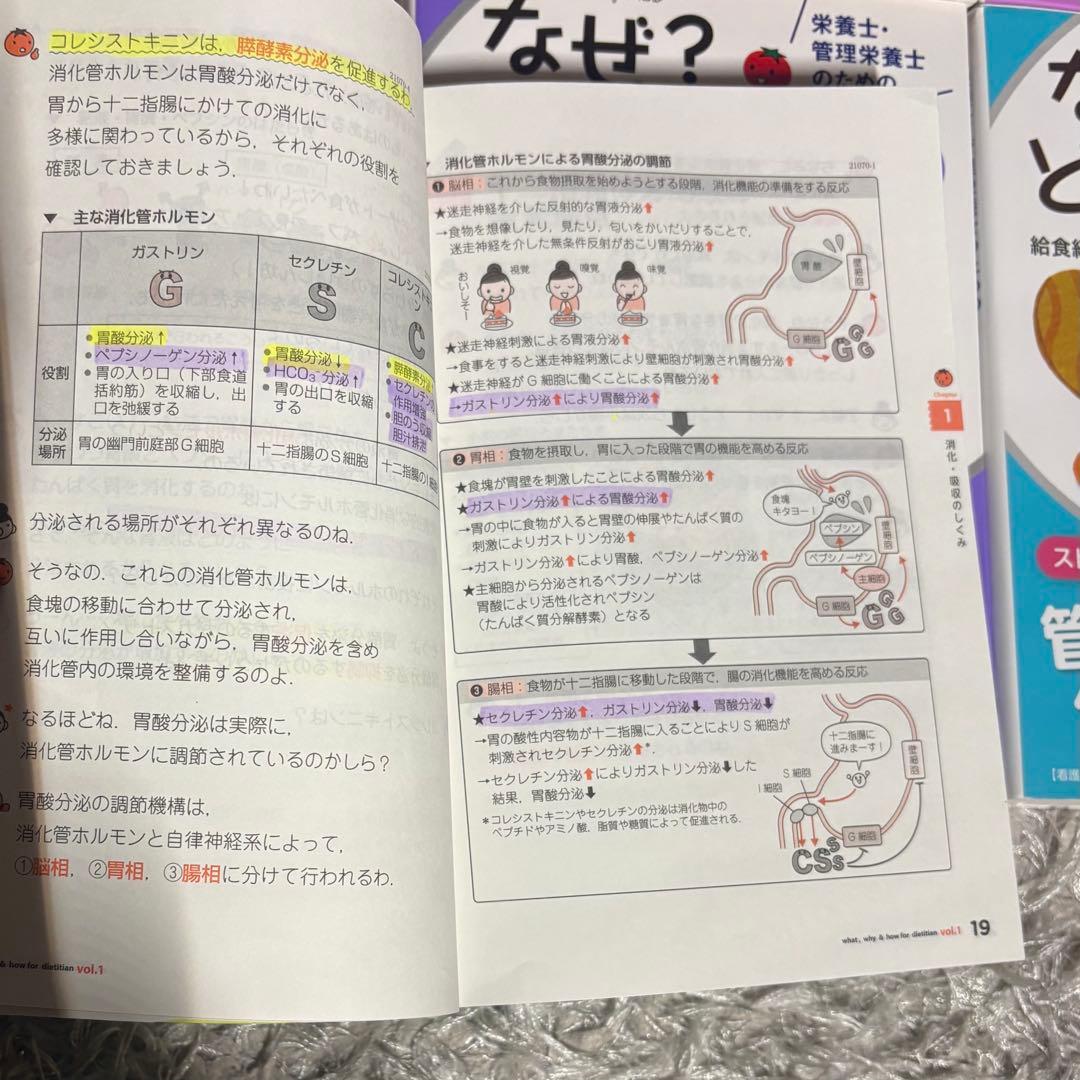 コレシストキニンは，膵酵素分泌を促進するわ.
21070-1
消化管ホルモンは胃酸分泌だけでなく，
胃から十二指腸にかけての消化に
多様に関わっているから，それぞれの役割を
確認しておきましょう．
▼ 主な消化管ホルモン
ガストリン
G
セクレチン
S
コレシストキニン
C
役割
• 胃酸分泌↑
• ペプシノーゲン分泌↑
• 胃の入り口（下部食道
括約筋）を収縮し，出
口を弛緩する
• 胃酸分泌↓
• HCO₃⁻分泌↑
• 胃の出口を収縮
する
• 膵酵素分泌
• セクレチンの
作用増強
• 胆のう収縮
胆汁排泄
分泌
場所
胃の幽門前庭部G細胞
十二指腸のS細胞
十二指腸のI細胞
分泌される場所がそれぞれ異なるのね．
そうなの．これらの消化管ホルモンは，
食塊の移動に合わせて分泌され，
互いに作用し合いながら，胃酸分泌を含め
消化管内の環境を整備するのよ．
なるほどね．胃酸分泌は実際に，
消化管ホルモンに調節されているのかしら？
胃酸分泌の調節機構は，
消化管ホルモンと自律神経系によって，
①脳相，②胃相，③腸相に分けて行われるわ．
& how for dietitian vol.1
▼ 消化管ホルモンによる胃酸分泌の調節
21070-1
❶ 脳相：これから食物摂取を始めようとする段階，消化機能の準備をする反応
★迷走神経を介した反射的な胃液分泌↑
→食物を想像したり，見たり，匂いをかいだりすることで，
迷走神経を介した無条件反射がおこり胃液分泌↑
おいしそ〜
視覚
嗅覚
味覚
胃酸
壁細胞
G細胞
G G G
★迷走神経刺激による胃液分泌↑
→食事をすると迷走神経刺激により壁細胞が刺激され胃酸分泌↑
★迷走神経がG細胞に働くことによる胃酸分泌↑
→ガストリン分泌↑により胃酸分泌↑
❷ 胃相：食物を摂取し，胃に入った段階で胃の機能を高める反応
★食塊が胃壁を刺激したことによる胃酸分泌↑
★ガストリン分泌↑による胃酸分泌↑
→胃の中に食物が入ると胃壁の伸展やたんぱく質の
刺激によりガストリン分泌↑
→ガストリン分泌↑により胃酸，ペプシノーゲン分泌↑
★主細胞から分泌されるペプシノーゲンは
胃酸により活性化されペプシン
（たんぱく質分解酵素）となる
食塊
キタヨー！
ペプシン
ペプシノーゲン
壁細胞
主細胞
G細胞
G G G
❸ 腸相：食物が十二指腸に移動した段階で，腸の消化機能を高める反応
★セクレチン分泌↑，ガストリン分泌↓，胃酸分泌↓
→胃の酸性内容物が十二指腸に入ることによりS細胞が
刺激されセクレチン分泌↑*．
→セクレチン分泌↑によりガストリン分泌↓した
結果，胃酸分泌↓
*コレシストキニンやセクレチンの分泌は消化物中の
ペプチドやアミノ酸，脂質や糖質によって促進される．
十二指腸に
進みまーす！
壁細胞
S細胞
I細胞
G細胞
CSSS
Chapter
1
消化・吸収のしくみ
what, why & how for dietitian vol.1 19
なぜ？
栄養士・
管理栄養士
のための
な
ど
給食経
スト
管
【看護